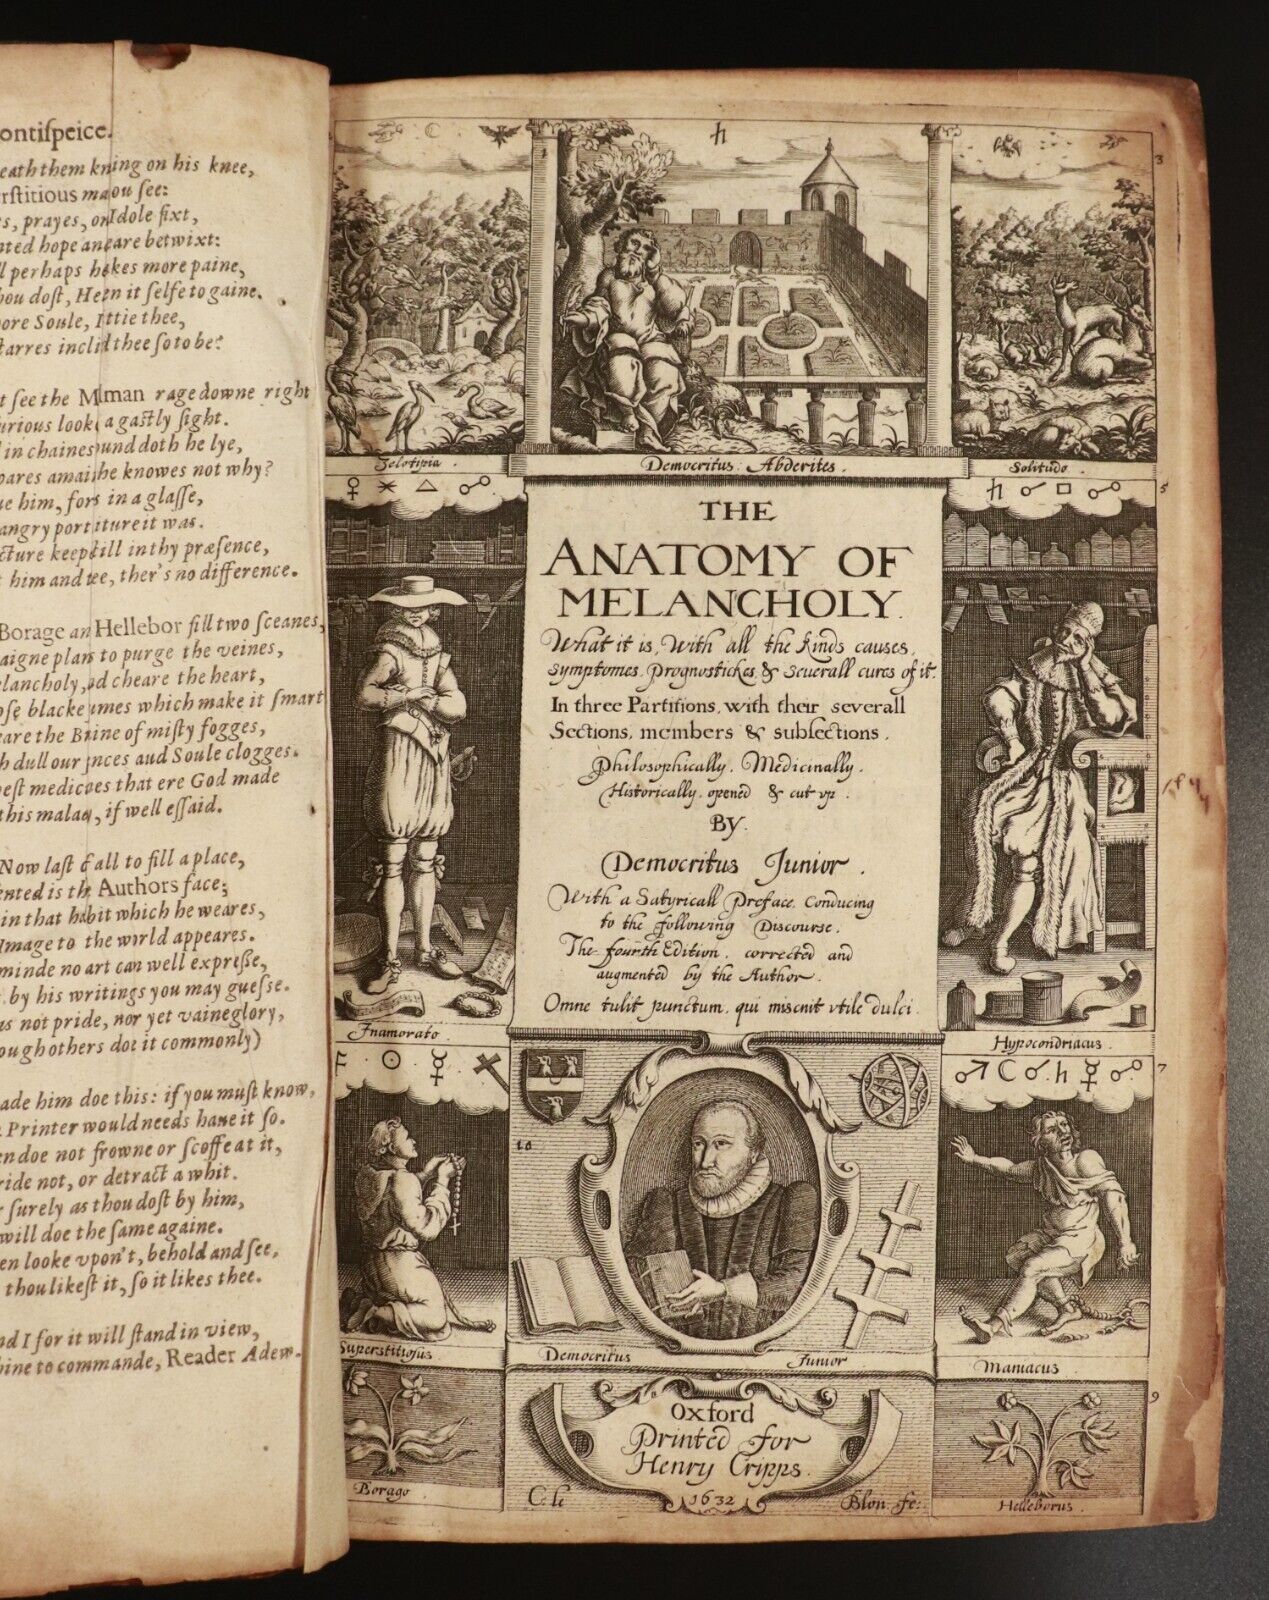 ontiſpeice.
eath them kning on his knee,
rſtitious
es, prayes, on Idole fixt,
nted hope an care betwixt:
ll perhaps kes more paine,
hou doſt, He n it ſelfe to gaine.
ore Soule, I ttie thee,
tarres incli thee ſo to be?
t ſee the M man rage downe right
urious look a gaſtly ſight.
in chaines und doth he lye,
oares amai he knowes not why?
ue him, for s in a glaſſe,
angry port iture it was.
cture keep ill in thy præſence,
t him and ee, ther's no difference.
Borage an Hellebor fill two ſceanes,
aigne plan to purge the veines,
elancholy, d cheare the heart,
oſe blacke umes which make it ſmart
eare the B ine of miſty fogges,
h dull our nces and Soule clogges.
eſt medici es that ere God made
this mala , if well eſſaid.
Now laſt f all to fill a place,
ented is th Authors face;
in that habit which he weares,
Image to the world appeares.
minde no art can well expreſſe,
by his writings you may gueſſe.
as not pride, nor yet vaineglory,
ough others doe it commonly)
ade him doe this: if you muſt know,
Printer would needs haue it ſo.
en doe not frowne or ſcoffe at it,
ride not, or detract a whit.
ſurely as thou doſt by him,
will doe the ſame againe.
en looke vpon't, behold and ſee,
thou likeſt it, ſo it likes thee.
nd I for it will ſtand in view,
hine to commande, Reader Adew.
1 ♄ 3
Zelotipia. Democritus Abderites. Solitudo.
♀ ⚹ △ ☍ ♄ ☌ □ ☍ 5
THE
ANATOMY OF
MELANCHOLY.
What it is, With all the kinds causes,
symptomes, prognostickes, & seuerall cures of it.
In three Partitions, with their severall
Sections, members & subsections.
Philosophically, Medicinally,
Historically, opened & cut vp.
BY.
Democritus Junior.
With a Satyricall Preface, Conducing
to the following Discourse.
The fourth Edition, corrected and
augmented by the Author.
Omne tulit punctum, qui miscuit vtile dulci.
Inamorato. Hypocondriacus.
☉ ☿ ♂ ☾ ☌ ♄ ☿ ☍ 7
10
Superstitiosus Democritus Junior Maniacus
9
Oxford
Printed for
Henry Cripps.
1632
Borago. C: le Blon. fe: Helleborus.